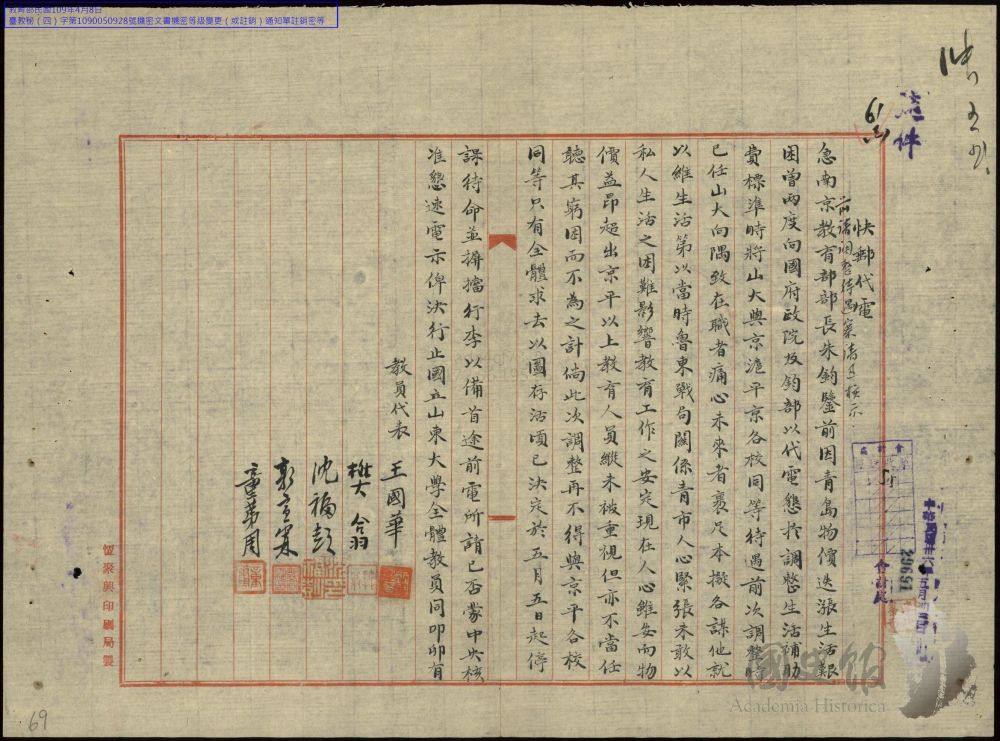 教育部民國109年4月8日
臺教秘（四）字第1090050928號機密文書機密等級變更（或註銷）通知單註銷密等
速件
快郵代電
前請調整待遇案請迅核示
急南京教育部部長朱鈞鑒前因青島物價迭漲生活艱
困曾兩度向國府政院及鈞部以代電懇於調整生活補助
費標準時將山大與京滬平京各校同等待遇前次調整時
已任山大向隅致在職者痛心未來者裹足本擬各謀他就
以維生活第以當時魯東戰局關係青市人心緊張未敢以
私人生活之困難影響教育工作之安定現在人心雖安而物
價益昂超出京平以上教育人員縱未被重視但亦不當任
聽其窮困而不為之計倘此次調整再不得與京平各校
同等只有全體求去以圖存活頃已決定於五月五日起停
課待命並摒擋行李以備首途前電所請已否蒙中央核
准懇速電示俾決行止國立山東大學全體教員同叩卯有
教員代表
王國華
樊翕
沈福彭
郭宣霖
童第周
恆聚興印刷局製
會計處
29691
69
國史館
Academia Historica